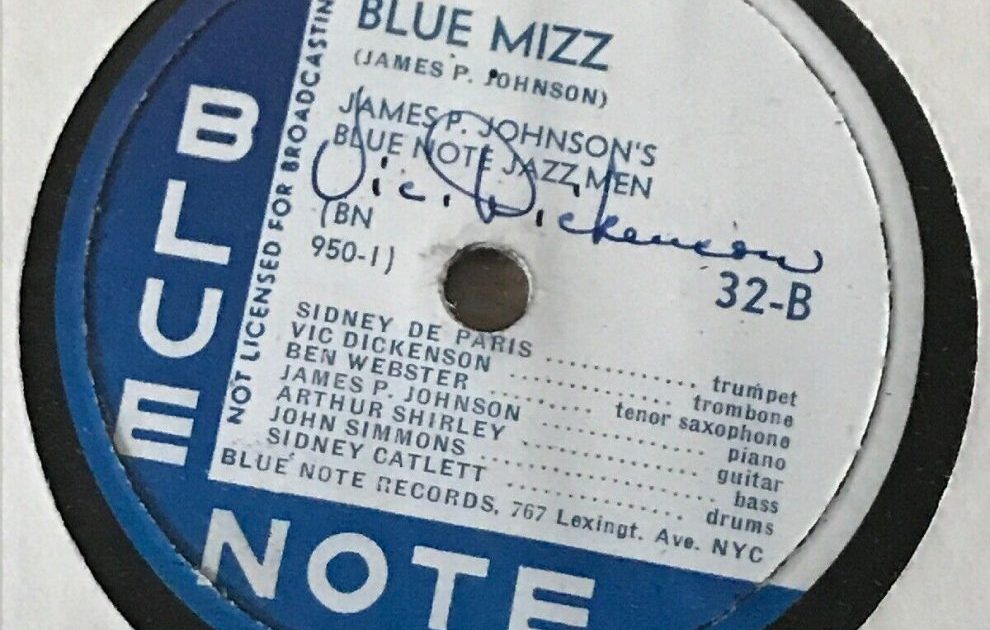 BLUE MIZZ
(JAMES P. JOHNSON)
JAMES P. JOHNSON'S
BLUE NOTE JAZZ MEN
Vic. Dickenson
(BN
950-1)
32-B
SIDNEY DE PARIS .............. trumpet
VIC DICKENSON ................ trombone
BEN WEBSTER .......... tenor saxophone
JAMES P. JOHNSON ................ piano
ARTHUR SHIRLEY ................ guitar
JOHN SIMMONS .................... bass
SIDNEY CATLETT ................ drums
BLUE NOTE RECORDS, 767 Lexingt. Ave. NYC
NOT LICENSED FOR BROADCASTIN
BLUE
NOTE